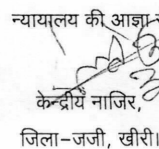 न्यायालय की आज्ञा
केन्द्रीय नाजिर,
जिला-जजी, खीरी।